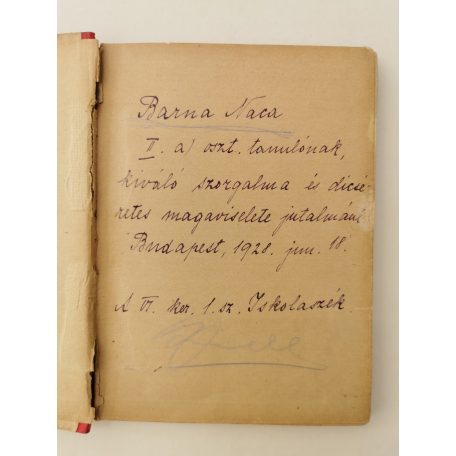 Barna Naca
II. a) oszt. tanulónak,
kiváló szorgalma és dicsé-
retes magaviselete jutalmául
Budapest, 1928. jun. 18.
A VI. ker. 1. sz. Iskolaszék.